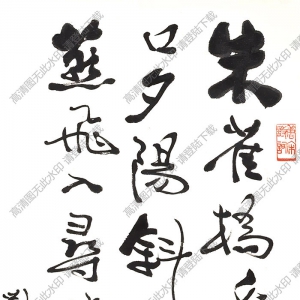 朱雀橋
口夕陽斜
燕飛入尋
高清图无此水印 请登陆下载
高清图无此水印 请登陆下载
高清图无此水印 请登陆下载
高清图无此水印 请登陆下载